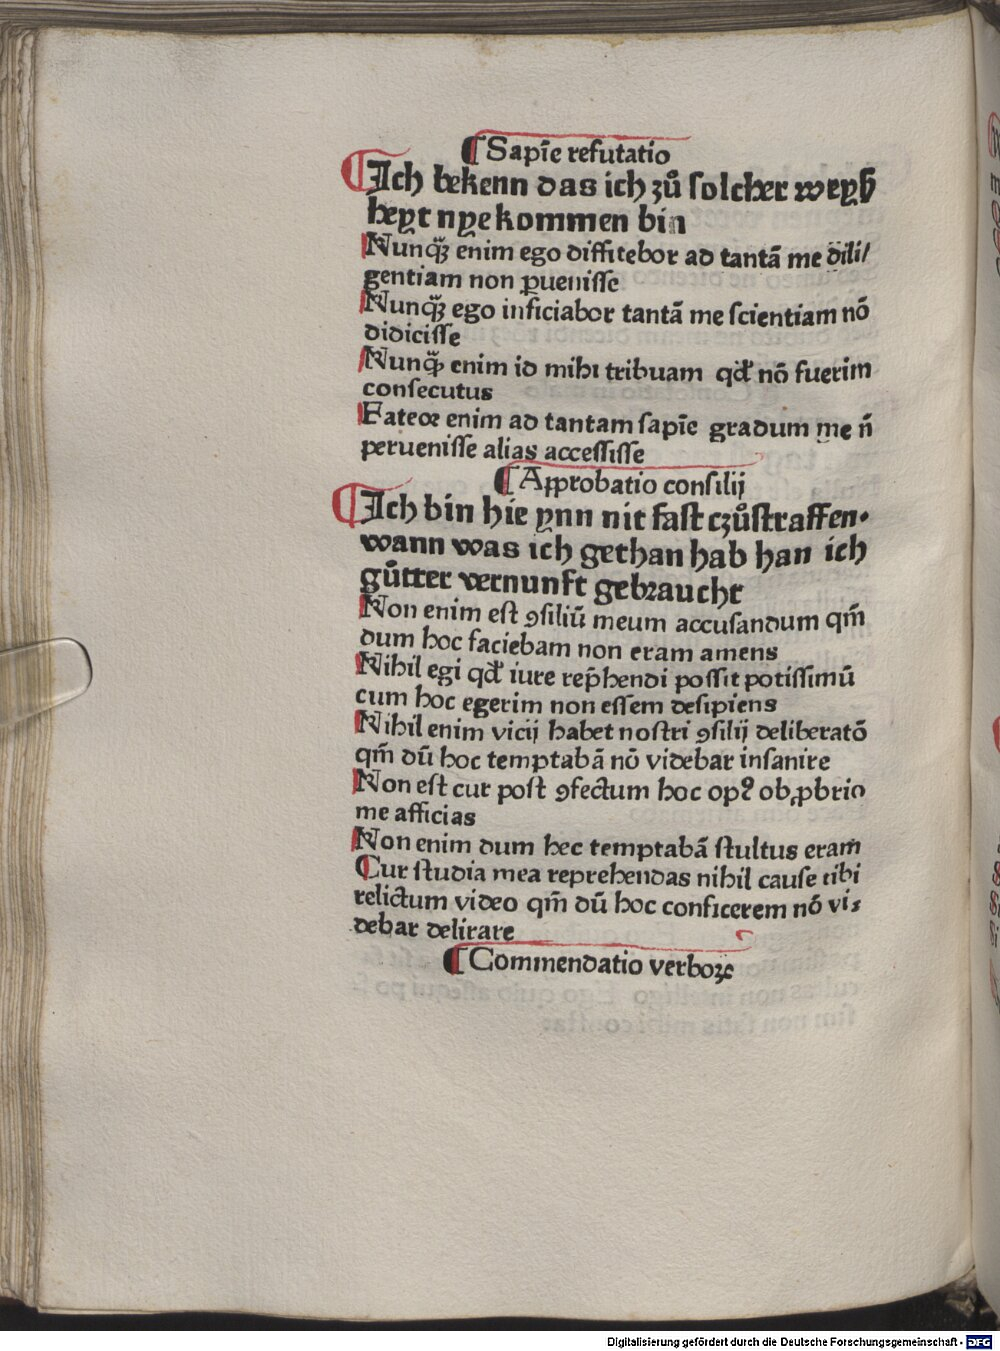 ¶ Sapīe refutatio
¶ Ich bekenn das ich zů ſolcher weyß
heyt nye kommen bin
Nunqͫꝫ enim ego diffitebor ad tantā me dili/
gentiam non ꝑueniſſe
Nunqͫꝫ ego inficiabor tantā me ſcientiam nō
didiciſſe
Nunqͫꝫ enim id mihi tribuam qd̓ nō fuerim
conſecutus
Fateor enim ad tantam ſapīe gradum me n̄
perueniſſe alias acceſſiſſe
¶ Approbatio conſilij
¶ Ich bin hie ynn nit faſt czůſtraffen·
wann was ich gethan hab han ich
gůtter vernunft gebꝛaucht
Non enim eſt ꝯſiliū meum accuſandum qm̄
dum hoc faciebam non eram amens
Nihil egi qd̓ iure rep̄hendi poſſit potiſſimū
cum hoc egerim non eſſem deſipiens
Nihil enim vicij habet noſtri ꝯſilij deliberatō
qm̄ dū hoc temptabā nō videbar inſanire
Non eſt cur poſt ꝯfectum hoc opꝰ obꝓbrio
me afficias
Non enim dum hec temptabā ſtultus eram
Cur ſtudia mea reprehendas nihil cauſe tibi
relictum video qm̄ dū hoc conficerem nō vi⸗
debar delirare
¶ Commendatio verboꝝ
Digitalisierung gefördert durch die Deutsche Forschungsgemeinschaft - DFG